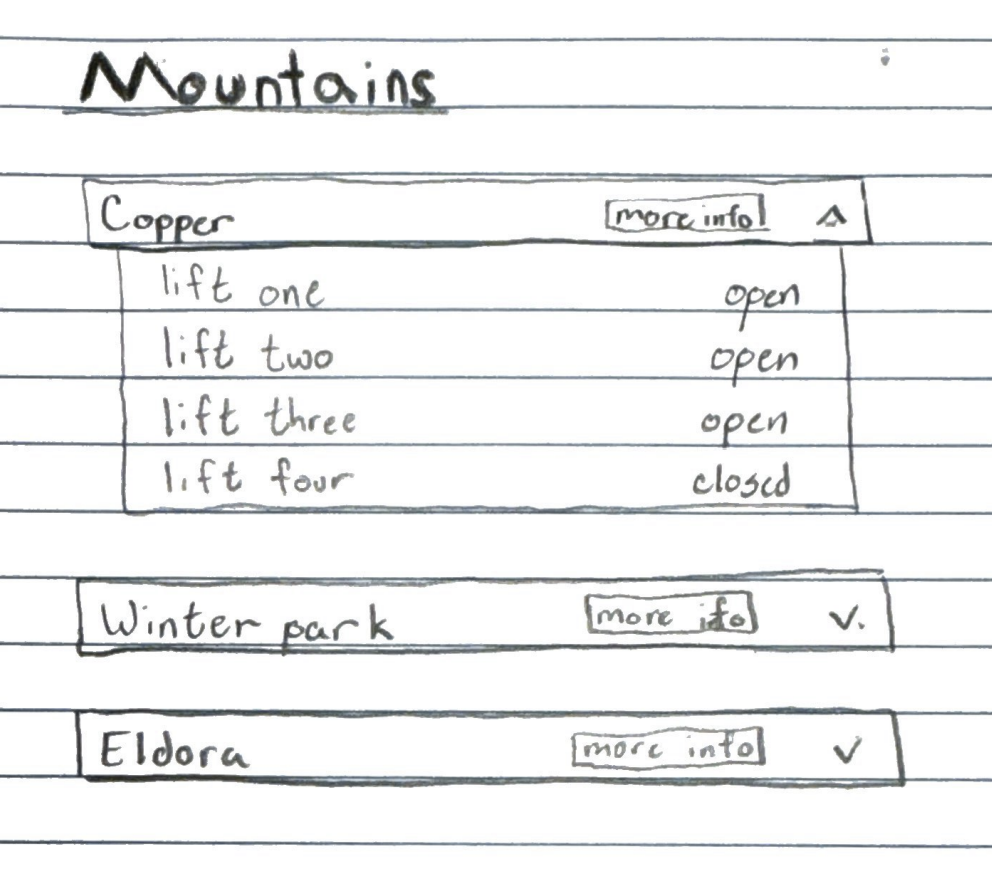 Mountains
Copper more info ^
lift one open
lift two open
lift three open
lift four closed
Winter park more ifo v.
Eldora more info v